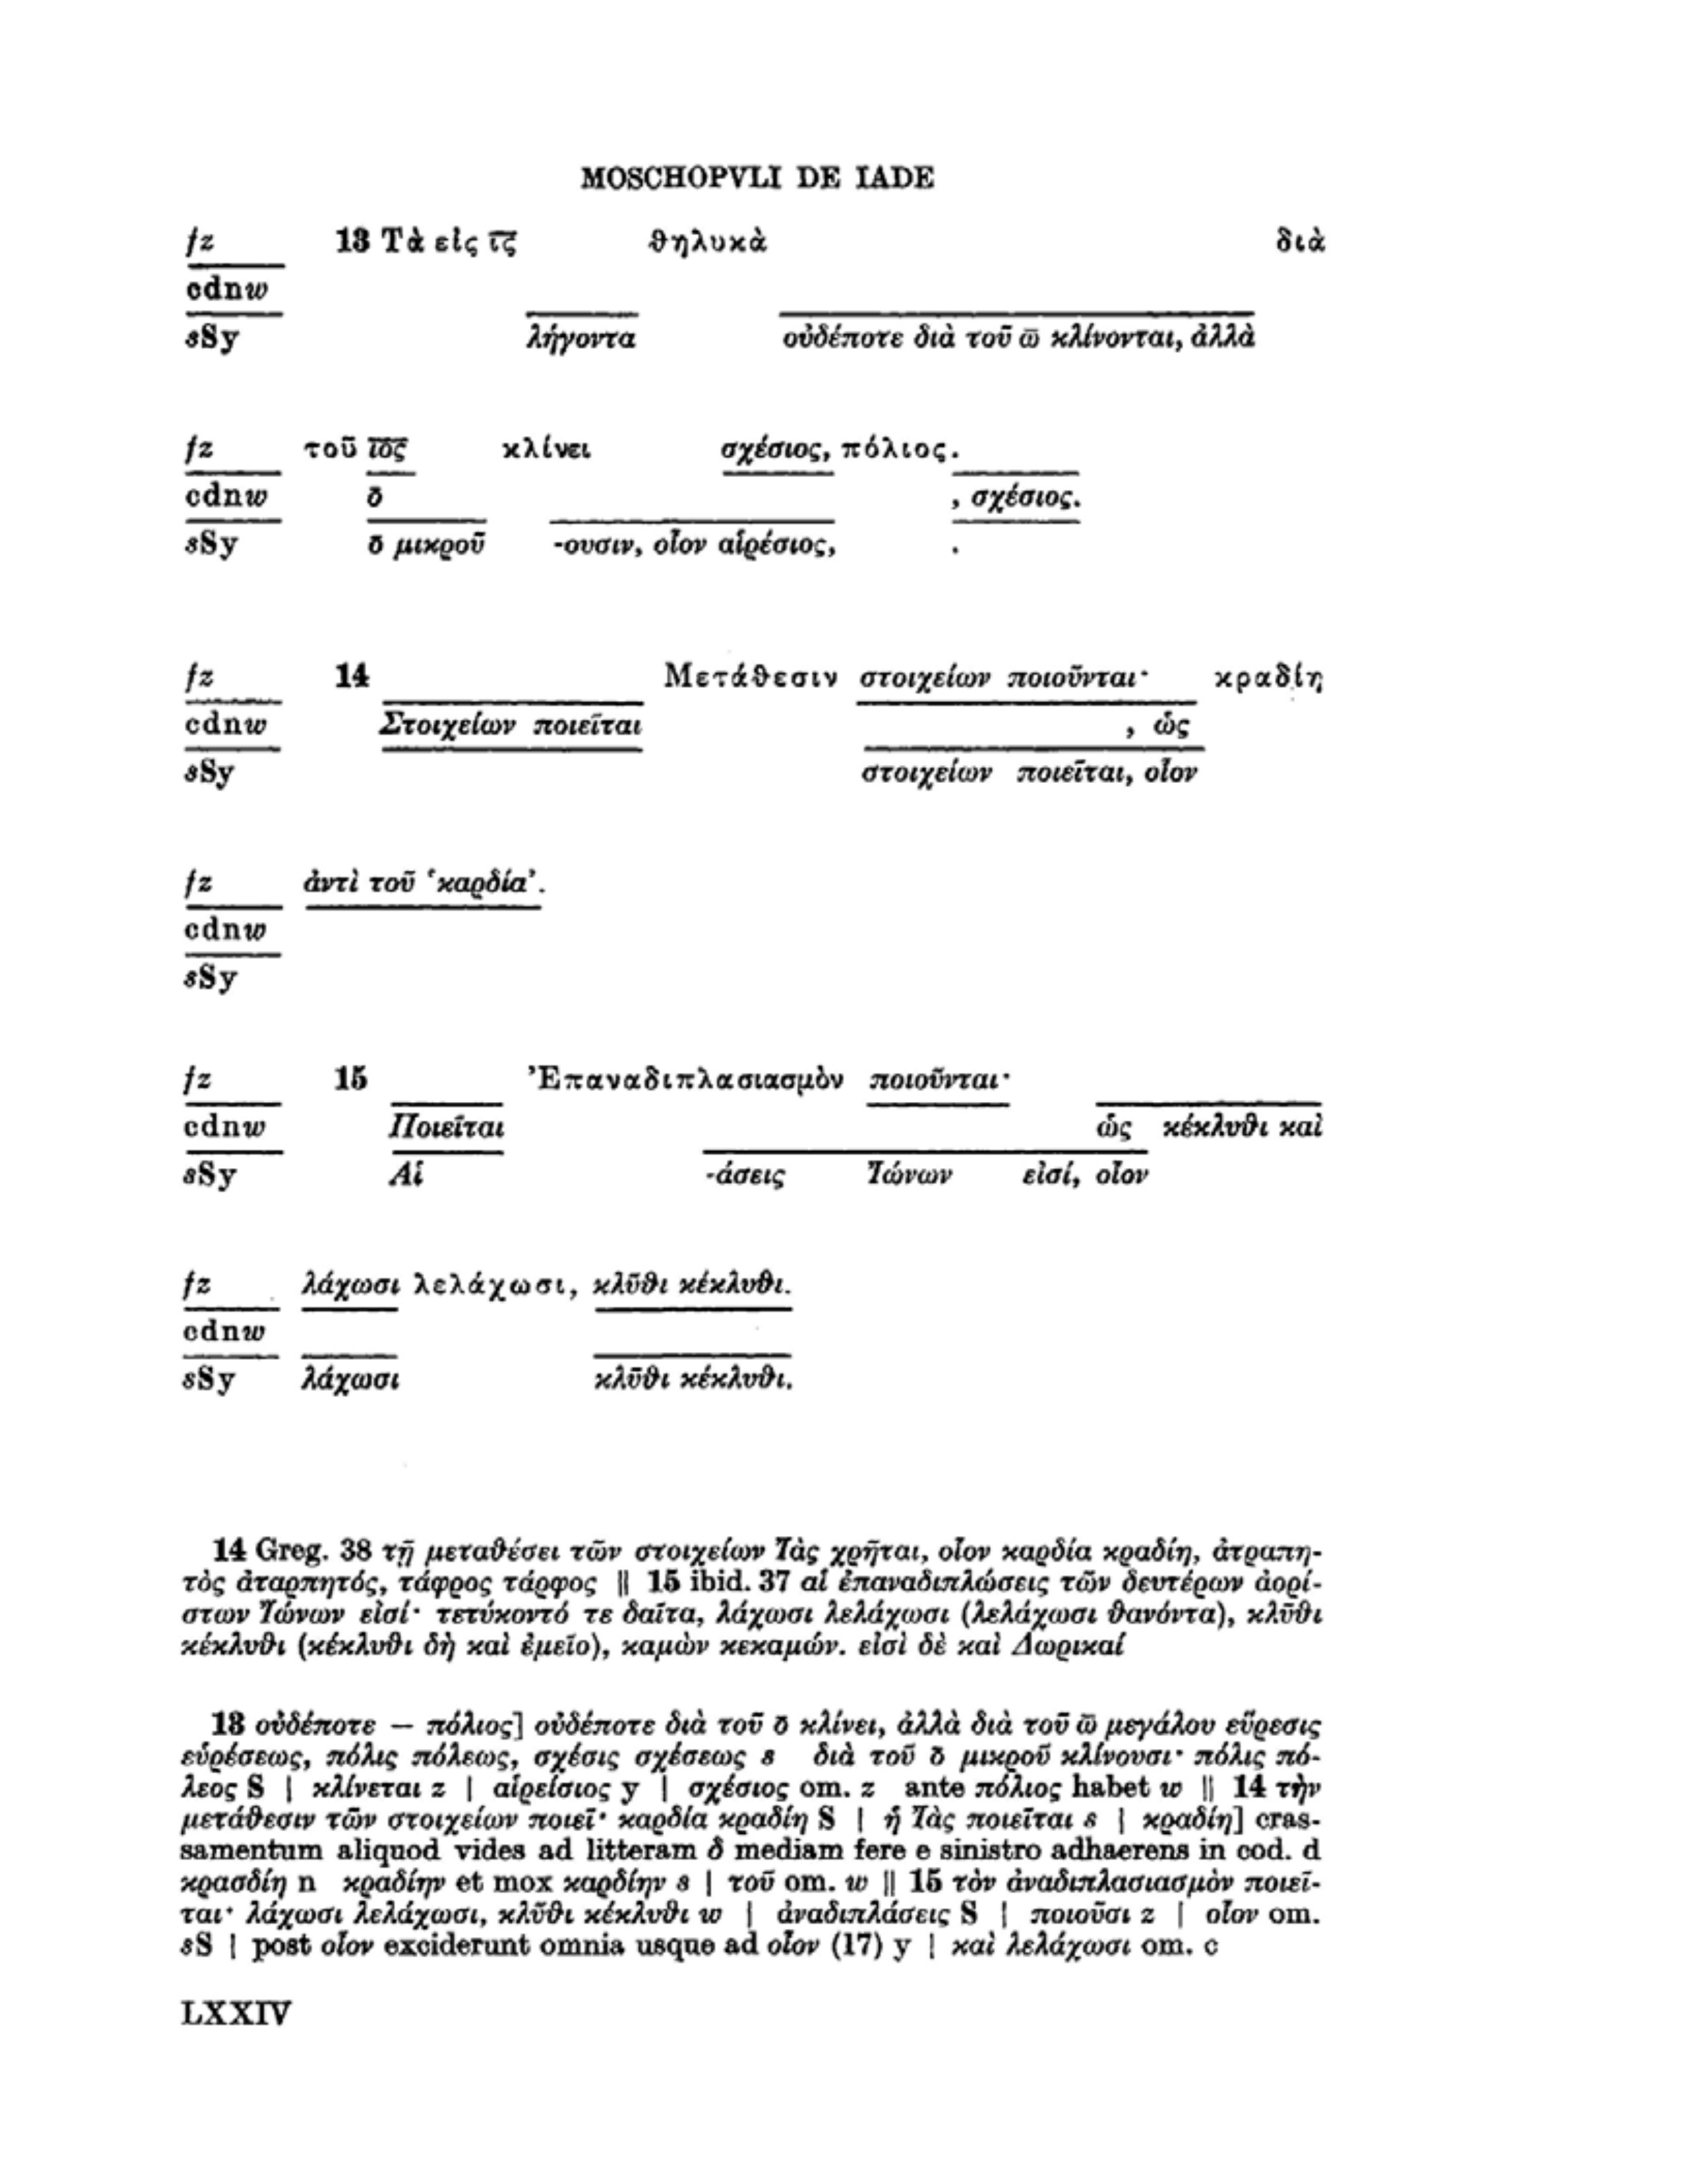 MOSCHOPVLI DE IADE
fz 13 Τὰ εἰς ῑς̄ θηλυκὰ διὰ
cdnw
sSy λήγοντα οὐδέποτε διὰ τοῦ ω̄ κλίνονται, ἀλλὰ
fz τοῦ ῑο̄ς̄ κλίνει σχέσιος, πόλιος.
cdnw ο̄ , σχέσιος.
sSy ο̄ μικροῦ -ουσιν, οἷον αἱρέσιος, .
fz 14 Μετάθεσιν στοιχείων ποιοῦνται· κραδίη
cdnw Στοιχείων ποιεῖται , ὡς
sSy στοιχείων ποιεῖται, οἷον
fz ἀντὶ τοῦ ‘καρδία’.
cdnw
sSy
fz 15 Ἐπαναδιπλασιασμὸν ποιοῦνται·
cdnw Ποιεῖται ὡς κέκλυθι καὶ
sSy Αἱ -άσεις Ἰώνων εἰσί, οἷον
fz λάχωσι λελάχωσι, κλῦθι κέκλυθι.
cdnw
sSy λάχωσι κλῦθι κέκλυθι.
14 Greg. 38 τῇ μεταθέσει τῶν στοιχείων Ἰὰς χρῆται, οἷον καρδία κραδίη, ἀτραπη-
τὸς ἀταρπητός, τάφρος τάρφος || 15 ibid. 37 αἱ ἐπαναδιπλώσεις τῶν δευτέρων ἀορί-
στων Ἰώνων εἰσί· τετύκοντό τε δαῖτα, λάχωσι λελάχωσι (λελάχωσι θανόντα), κλῦθι
κέκλυθι (κέκλυθι δὴ καὶ ἐμεῖο), καμὼν κεκαμών. εἰσὶ δὲ καὶ Δωρικαί
13 οὐδέποτε — πόλιος] οὐδέποτε διὰ τοῦ ο̄ κλίνει, ἀλλὰ διὰ τοῦ ω̄ μεγάλου εὕρεσις
εὑρέσεως, πόλις πόλεως, σχέσις σχέσεως s διὰ τοῦ ο̄ μικροῦ κλίνουσι· πόλις πό-
λεος S | κλίνεται z | αἱρείσιος y | σχέσιος om. z ante πόλιος habet w || 14 τὴν
μετάθεσιν τῶν στοιχείων ποιεῖ· καρδία κραδίη S | ἡ Ἰὰς ποιεῖται s | κραδίη] cras-
samentum aliquod vides ad litteram δ mediam fere e sinistro adhaerens in cod. d
κρασδίη n κραδίην et mox καρδίην s | τοῦ om. w || 15 τὸν ἀναδιπλασιασμὸν ποιεῖ-
ται· λάχωσι λελάχωσι, κλῦθι κέκλυθι w | ἀναδιπλάσεις S | ποιοῦσι z | οἷον om.
sS | post οἷον exciderunt omnia usque ad οἷον (17) y | καὶ λελάχωσι om. c
LXXIV